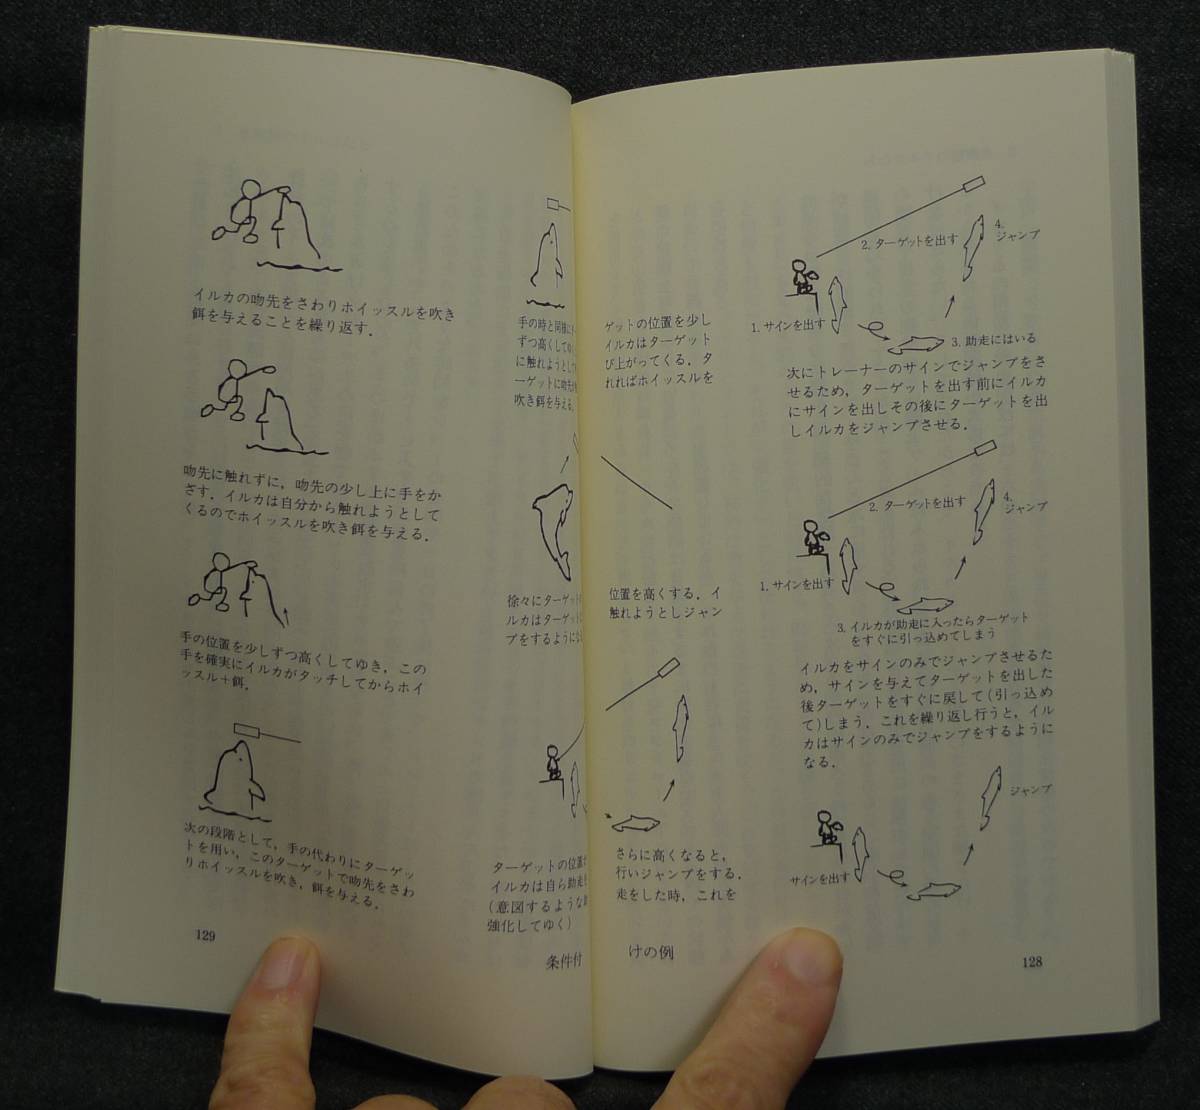 イルカの吻先をさわりホイッスルを吹き
餌を与えることを繰り返す．
吻先に触れずに，吻先の少し上に手をか
ざす．イルカは自分から触れようとして
くるのでホイッスルを吹き餌を与える．
手の位置を少しずつ高くしてゆき，この
手を確実にイルカがタッチしてからホイ
ッスル＋餌．
次の段階として，手の代わりにターゲッ
トを用い，このターゲットで吻先をさわ
りホイッスルを吹き，餌を与える．
129
手の時と同様に
ずつ高くしてゆ
に触れようとして
ーゲットに吻先
吹き餌を与える．
徐々にターゲット
ルカはターゲット
プをするようにな
ターゲットの位置
イルカは自ら助走
(意図するような
強化してゆく)
条件付
ゲットの位置を少し
イルカはターゲット
び上がってくる．タ
れればホイッスルを
位置を高くする．イ
触れようとしジャン
さらに高くなると，
行いジャンプをする．
走をした時，これを
けの例
2. ターゲットを出す
4.
ジャンプ
1. サインを出す
3. 助走にはいる
次にトレーナーのサインでジャンプをさ
せるため，ターゲットを出す前にイルカ
にサインを出しその後にターゲットを出
しイルカをジャンプさせる．
2. ターゲットを出す
4.
ジャンプ
1. サインを出す
3. イルカが助走に入ったらターゲット
をすぐに引っ込めてしまう
イルカをサインのみでジャンプさせるた
め，サインを与えてターゲットを出した
後ターゲットをすぐに戻して(引っ込め
て)しまう．これを繰り返し行うと，イル
カはサインのみでジャンプをするように
なる．
ジャンプ
サインを出す
128